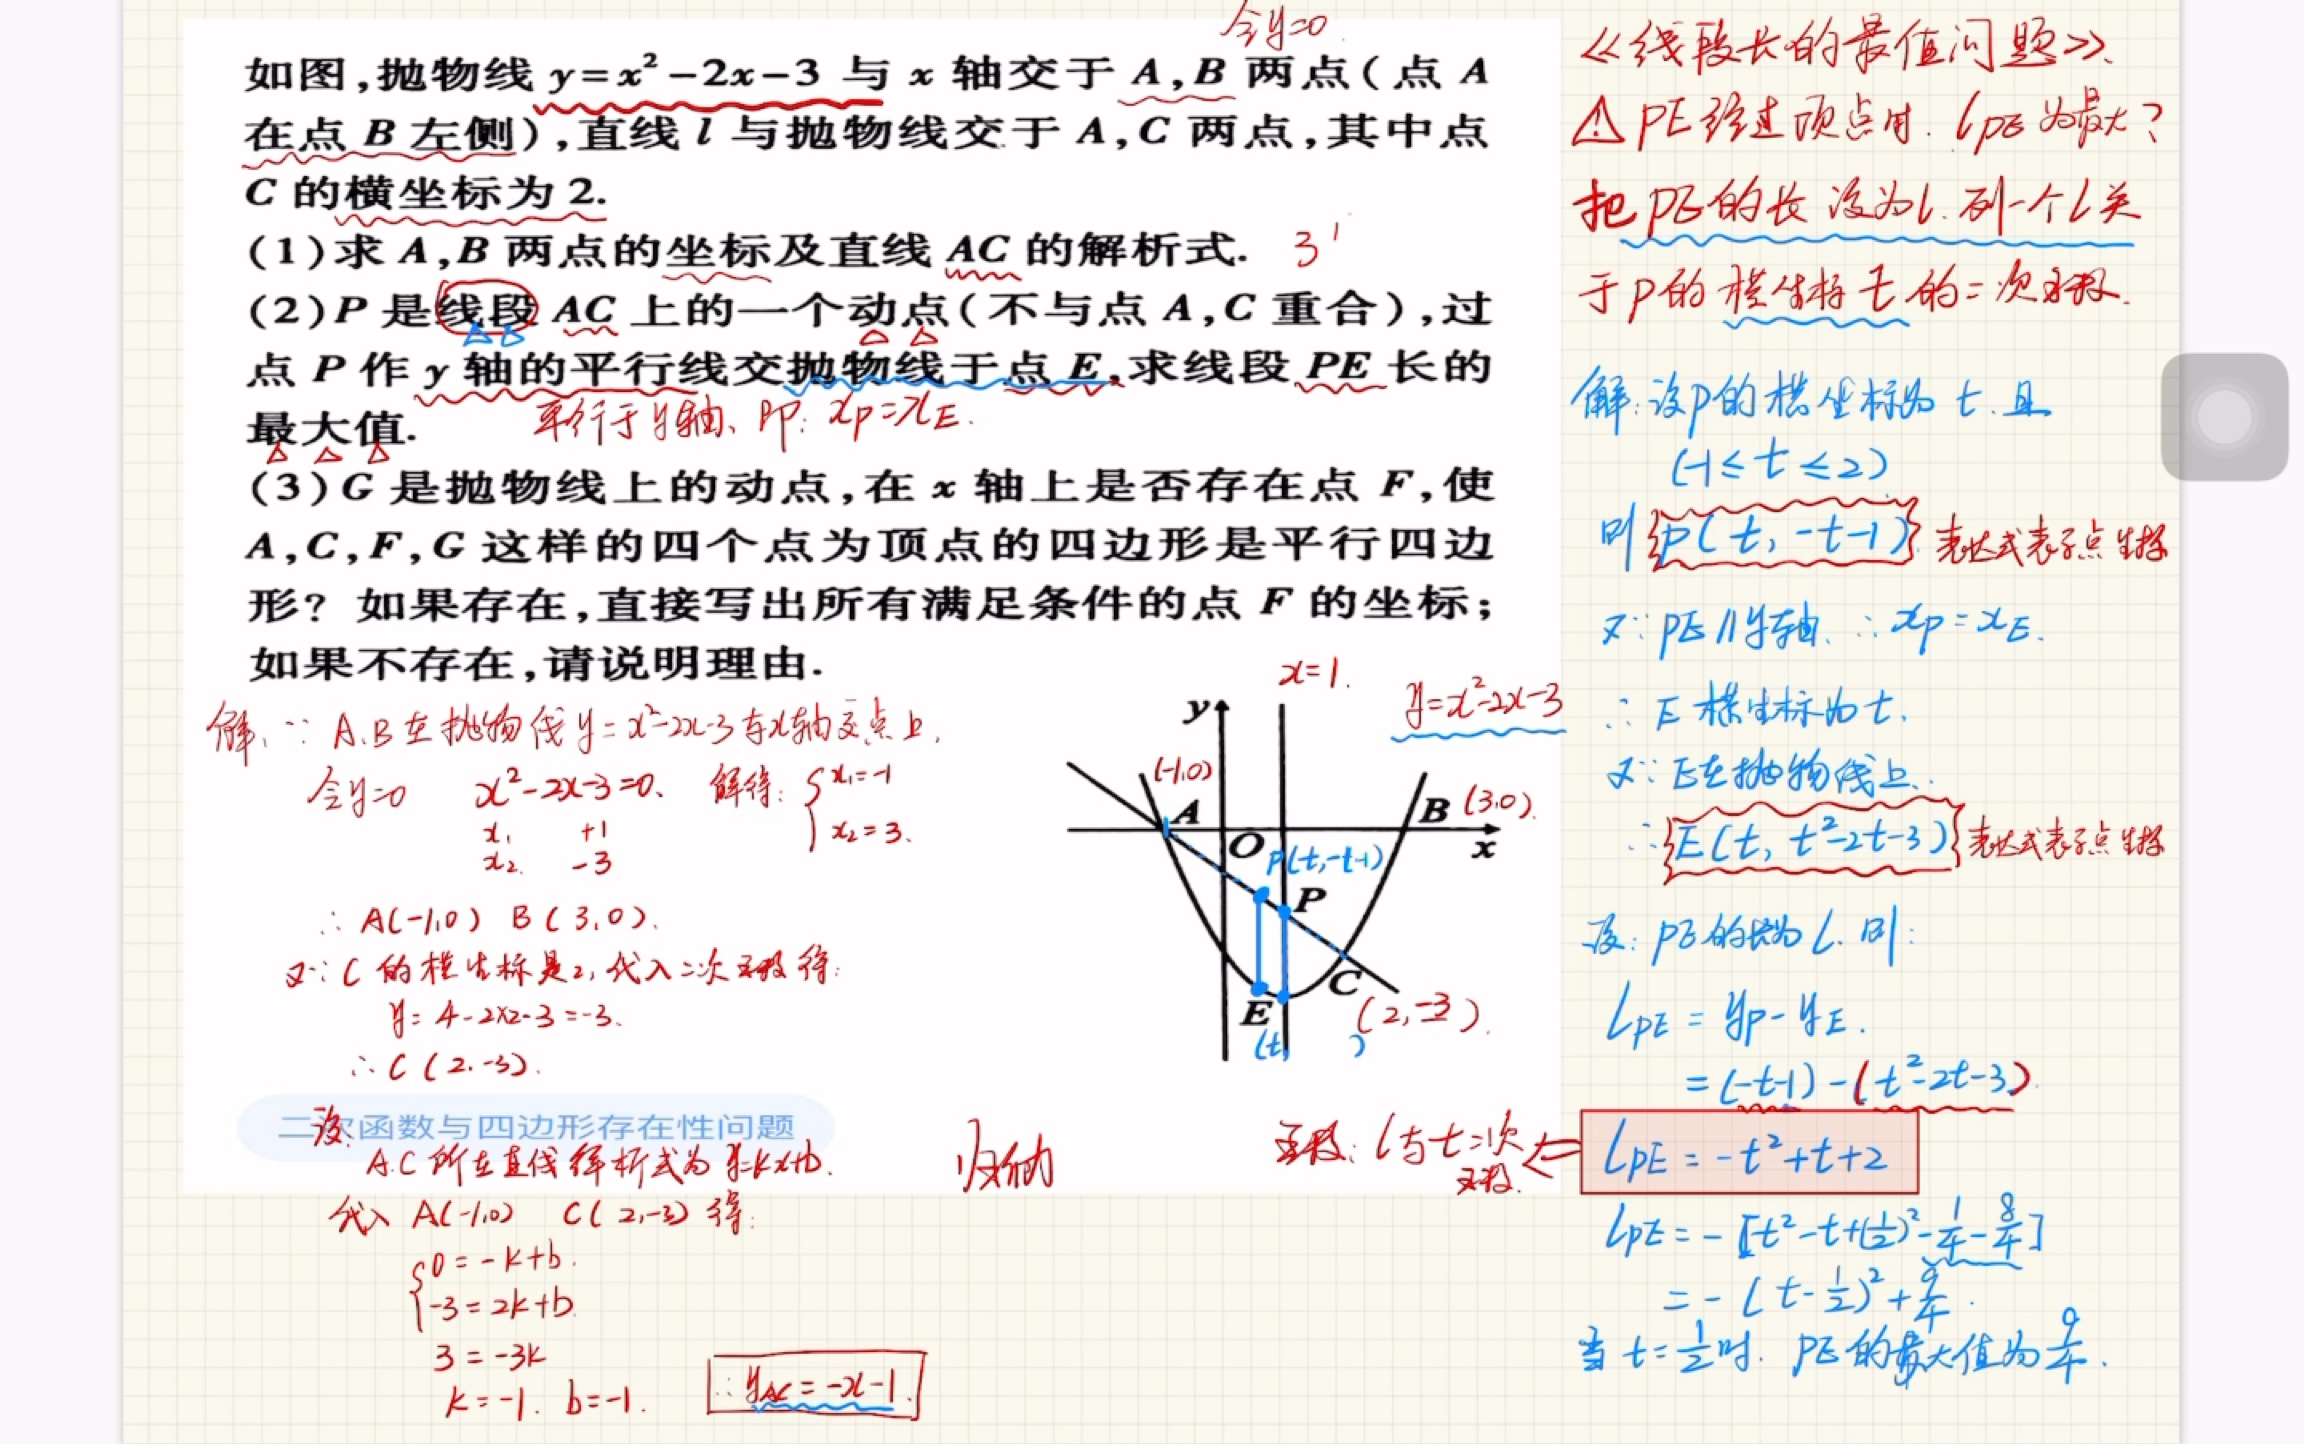 令y=0
如图,抛物线 y=x²-2x-3 与 x 轴交于 A,B 两点(点 A
在点 B 左侧),直线 l 与抛物线交于 A,C 两点,其中点
C 的横坐标为 2.
(1)求 A,B 两点的坐标及直线 AC 的解析式. 3'
(2)P 是线段 AC 上的一个动点(不与点 A,C 重合),过
点 P 作 y 轴的平行线交抛物线于点 E,求线段 PE 长的
最大值.
平行于y轴、即: xP=xE.
(3)G 是抛物线上的动点,在 x 轴上是否存在点 F,使
A,C,F,G 这样的四个点为顶点的四边形是平行四边
形? 如果存在,直接写出所有满足条件的点 F 的坐标;
如果不存在,请说明理由.
解:∵ A.B在抛物线y=x²-2x-3与x轴交点上.
令y=0 x²-2x-3=0. 解得: { x₁=-1
x₂=3.
x₁ +1
x₂ -3
∴ A(-1,0) B(3,0).
又∵ C的横坐标是2,代入二次函数得:
y=4-2×2-3=-3.
∴C(2,-3).
二次函数与四边形存在性问题
设:
A.C所在直线解析式为y=kx+b.
代入 A(-1,0) C(2,-3)得:
{ 0=-k+b.
-3=2k+b
3=-3k
k=-1. b=-1.
∴ yAC=-x-1.
x=1.
y=x²-2x-3
y
(-1,0)
A
B (3,0).
O
x
P(t,-t-1)
P
C
E
(2,-3).
(t, )
归纳
函数: l与t二次
函数.
《线段长的最值问题》.
⚠ PE经过顶点时. lPE为最大?
把PE的长设为l.列一个l关
于P的横坐标t的二次函数.
解:设P的横坐标为t.且
(-1≤t≤2)
则P(t,-t-1) 表达式表示点坐标
又∵PE//y轴. ∴xP=xE.
∴E横坐标为t.
又∵E在抛物线上.
∴E(t,t²-2t-3) 表达式表示点坐标
设:PE的长为l.则:
lPE=yP-yE.
=(-t-1)-(t²-2t-3).
lPE=-t²+t+2
lPE=-[t²-t+(1/2)²-1/4-8/4]
=-(t-1/2)²+9/4.
当t=1/2时. PE的最大值为9/4.